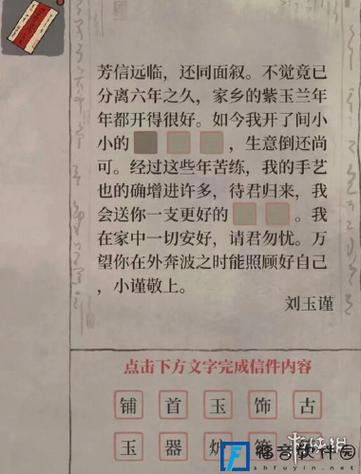 芳信远临，还同面叙。不觉竟已
分离六年之久，家乡的紫玉兰年
年都开得很好。如今我开了间小
小的，生意倒还尚
可。经过这些年苦练，我的手艺
也的确增进许多，待君归来，我
会送你一支更好的。我
在家中一切安好，请君勿忧。万
望你在外奔波之时能照顾好自己
，小谨敬上。
刘玉谨
点击下方文字完成信件内容
铺 首 玉 饰 古
玉 器 炉
福音软件园
shfuyin.net